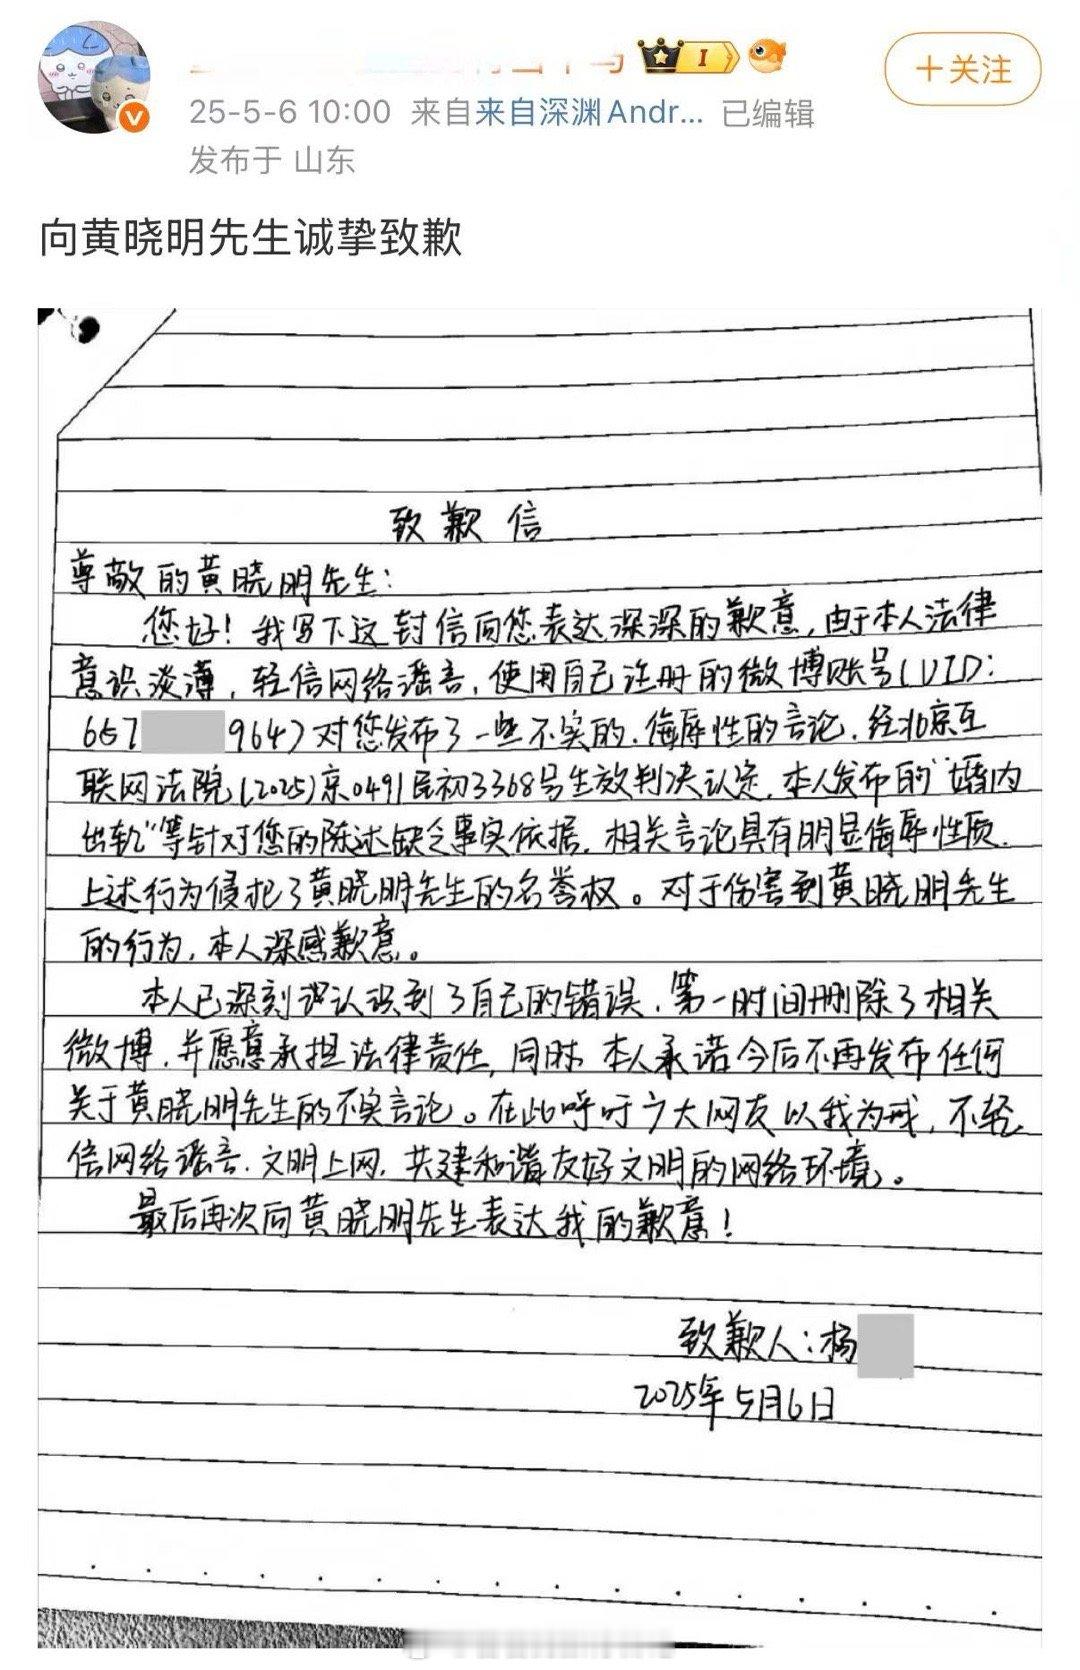 I
+关注
25-5-6 10:00 来自来自深渊Andr... 已编辑
发布于 山东
向黄晓明先生诚挚致歉
致歉信
尊敬的黄晓明先生：
您好！我写下这封信向您表达深深的歉意，由于本人法律
意识淡薄，轻信网络谣言，使用自己注册的微博账号（UID：
667 964）对您发布了一些不实的、侮辱性的言论，经北京互
联网法院（2025）京0491民初3368号生效判决认定，本人发布的“婚内
出轨”等针对您的陈述缺乏事实依据，相关言论具有明显侮辱性质，
上述行为侵犯了黄晓明先生的名誉权。对于伤害到黄晓明先生
的行为，本人深感歉意。
本人已深刻认识到了自己的错误，第一时间删除了相关
微博，并愿意承担法律责任，同时，本人承诺今后不再发布任何
关于黄晓明先生的不实言论。在此呼吁广大网友以我为戒，不轻
信网络谣言，文明上网，共建和谐友好文明的网络环境。
最后再次向黄晓明先生表达我的歉意！
致歉人：杨
2025年5月6日